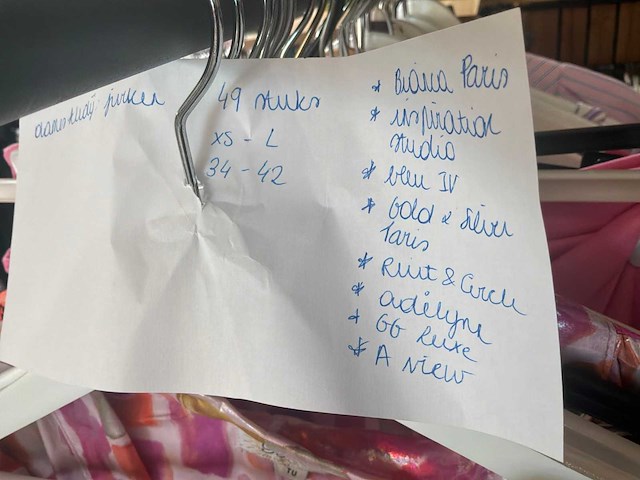 jurken
49 stuks
XS - L
34 - 42
* Biana Paris
* inspiration
studio
* bleu IV
* Gold & Silver
Paris
* Rint & Circle
* adilyne
* GG Luxe
* A View